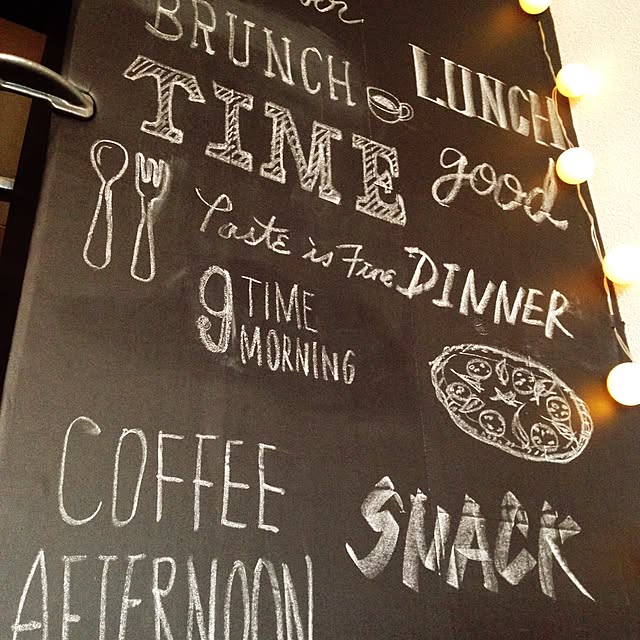 BRUNCH
LUNCH
TIME
good
Taste is Fine
DINNER
9 TIME
MORNING
COFFEE
SNACK
AFTERNOON